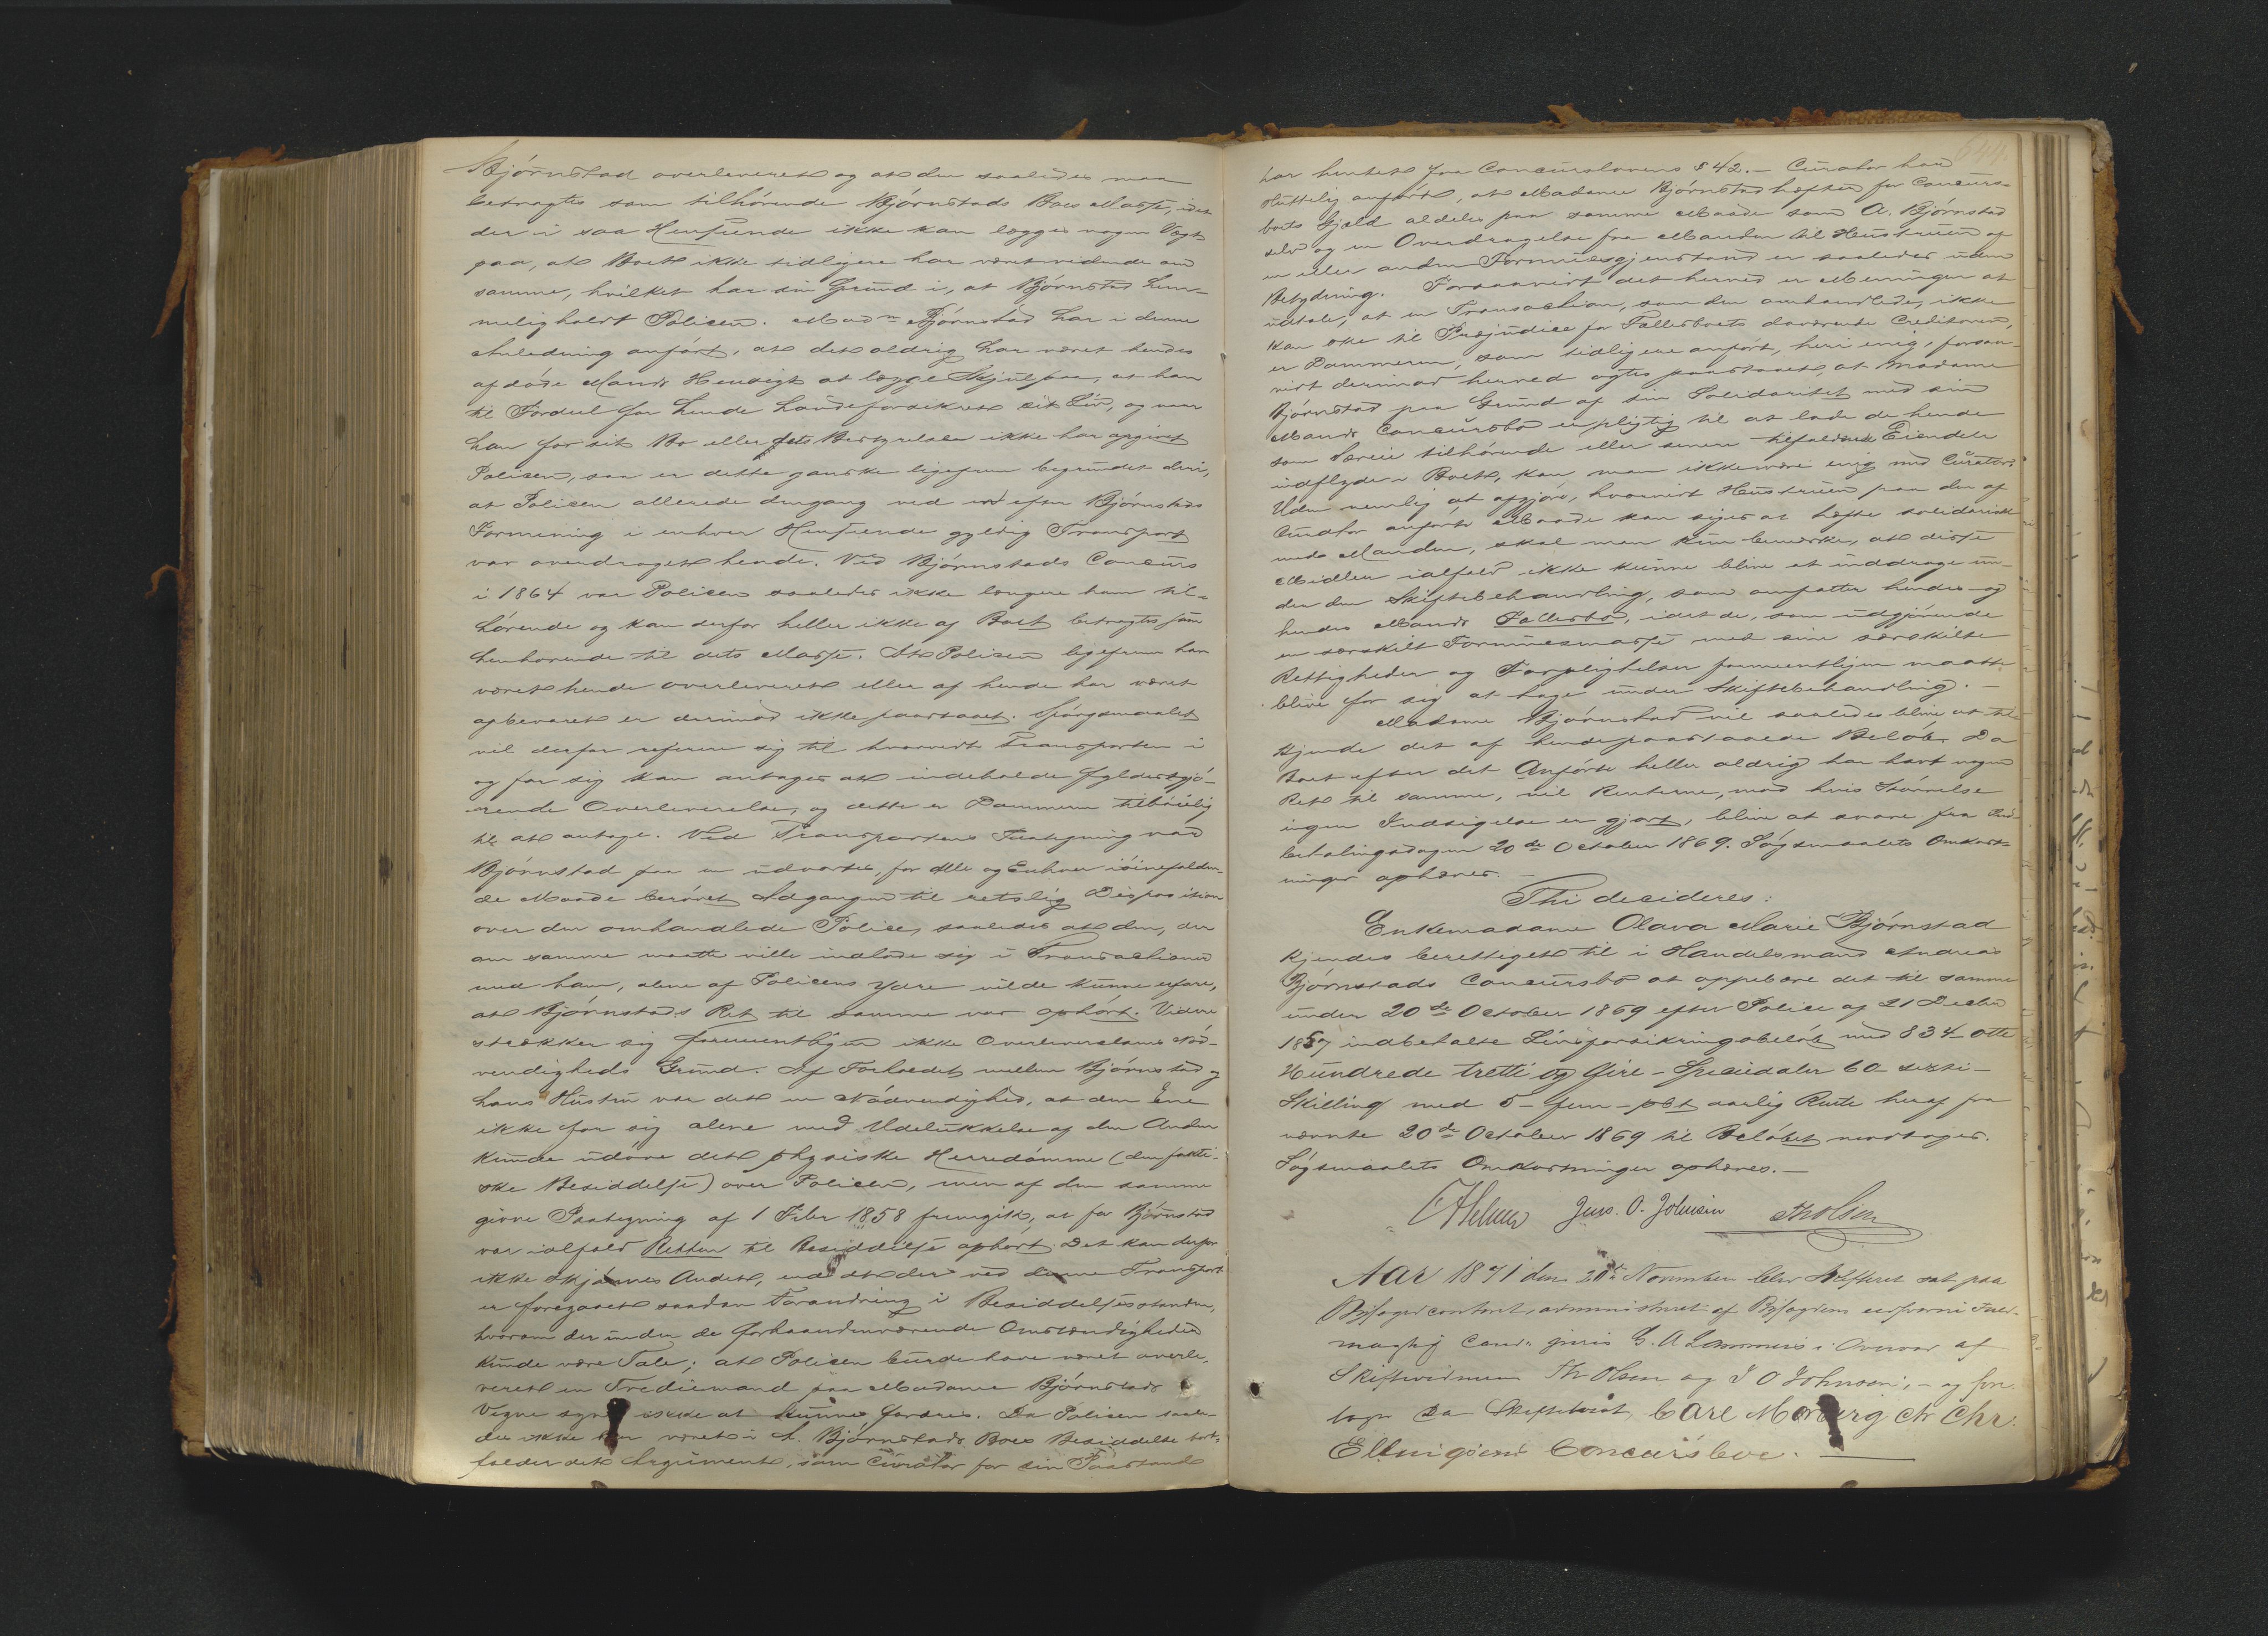 Bjørnstad overleveret og at den saaledes maa
betragtes som tilhørende Bjørnstads Boes Masse, idet
der i saa Henseende ikke kan lægges nogen Vægt
paa, at Boet ikke tidligere har været vidende om
samme, hvilket har sin Grund i, at Bjørnstad hem-
meligholdt Policen. Madm Bjørnstad har i denne
Anledning anført, at det aldrig har været hendes
afdøde Mands Hensigt at lægge Skjul paa, at han
til Fordeel for hende havde forsikret sit Liv, og naar
han for sit Bo eller dets Bestyrelse ikke har opgivet
Policen, saa er dette ganske ligefrem begrundet deri,
at Policen allerede dengang ved en efter Bjørnstads
Formening i enhver Henseende gyldig Transport
var overdraget hende. Ved Bjørnstads Concurs
i 1864 var Policen saaledes ikke længere ham til-
hørende og kan derfor heller ikke af Boet betragtes som
henhørende til dets Masse. At Policen ligefrem har
været hende overleveret eller af hende har været
opbevaret er derimod ikke paastaaet. Spørgsmaalet
vil derfor referere sig til hvorvidt Transporten i
og for sig kan antages at indeholde fyldestgjø-
rende Overleverelse, og dette er Dommeren tilbøielig
til at antage. Ved Transportens Paategning var
Bjørnstad paa en udvortes, for Alle og Enhver iøinefalden-
de Maade berøvet Adgangen til retslig Disposition
over den omhandlede Police, saaledes at den, der
om samme maatte ville indlade sig i Transactioner
med ham, alene af Policens Ydre vilde kunne erfare,
at Bjørnstads Ret til samme var ophørt. Videre
strækker sig formeentligen ikke Overleverelsens Nød-
vendigheds Grund. Af Forholdet mellem Bjørnstad og
hans Hustru var det en Nødvendighed, at den Ene
ikke for sig alene med Udelukkelse af den Anden
kunde udøve det physiske Herredømme (den fakti-
ske Besiddelse) over Policen, men af den samme
givne Paategning af 1 Febr 1858 fremgik, at for Bjørnstad
var ialfald Retten til Besiddelse ophørt. Det kan derfor
ikke skjønnes Andet, end at der ved denne Transport
er foregaaet saadan Forandring i Besiddelsesstanden,
hvorom der under de forhaandenværende Omstændigheder
kunde være Tale; at Policen burde have været overle-
veret en Trediemand paa Madame Bjørnstads
Vegne synes ikke at kunne fordres. Da Policen saale-
des ikke har været i A. Bjørnstads Boes Besiddelse bort-
falder det Argument, som Curator for sin Paastand
har hentet fra Concurslovens § 42. – Curator har
sluttelig anført, at Madame Bjørnstad hæfter for Concurs-
boets Gjeld aldeles paa samme Maade som A. Bjørnstad
selv og en Overdragelse fra Manden til Hustruen af
en eller anden Formuesgjenstand er saaledes uden
Betydning. Forsaavidt det herved er Meningen at
udtale, at en Transaction, som den omhandlede, ikke
kan ske til Præjudice for Fællesboets daværende Creditorer,
er Dommeren, som tidligere anført, heri enig, forsaa-
vidt derimod herved agtes paastaaet, at Madame
Bjørnstad paa Grund af sin Solidaritet med sin
Mands Concursbo er pligtig til at lade de hende
som Særeie tilhørende eller senere tilfaldende Eiendele
indflyde i Boet, kan man ikke være enig med Curator.
Uden nemlig at afgjøre, hvorvidt Hustruen paa den af
Curator anførte Maade kan siges at hæfte solidarisk
med Manden, skal man kun bemærke, at disse
Midler ialfald ikke kunne blive at inddrage un-
der den Skiftebehandling, som omfatter hendes og
hendes Mands Fællesbo, idet de, som udgjørende
en særskilt Formuesmasse med sine særskilte
Rettigheder og Forpligtelser formeentligen maatte
blive for sig at tage under Skiftebehandling. –
Madame Bjørnstad vil saaledes blive at til-
kjende det af hende paastaaede Beløb. Da
Boet efter det Anførte heller aldrig har havt nogen
Ret til samme, vil Renterne, mod hvis Størrelse
ingen Indsigelse er gjort, blive at svare fra Ind-
betalingsdagen 20de October 1869. Søgsmaalets Omkost-
ninger ophæves. –
Thi decideres:
Enkemadame Olava Marie Bjørnstad
kjendes berettiget til i Handelsmand Andreas
Bjørnstads Concursbo at oppebære det til samme
under 20de October 1869 efter Police af 21 Decbr
1857 indbetalte Livsforsikringsbeløb med 834 – otte
Hundrede tretti og fire – Speciedaler 60 – sexti –
Skilling med 5 – fem – pCt aarlig Rente heraf fra
nævnte 20de October 1869 til Beløbet modtages.
Søgsmaalets Omkostninger ophæves. –
Jens. O. Johnsen Th Olsen
Aar 1871 den November blev Skifteret sat paa
Byfogedcontoret, administreret af Byfogdens edsvorne Fuld-
mægtig Cand. juris C. A. Lammers i Overvær af
Skiftevidnerne Th Olsen og J O Johnsen, – og fore-
toges da Skifteboet, Carl Morberg & Chr.
Concursboe. –